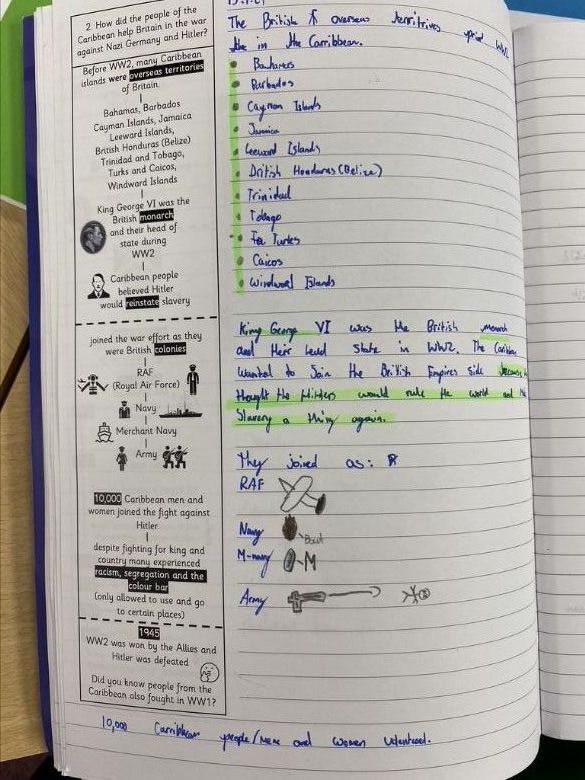 2. How did the people of the
Caribbean help Britain in the war
against Nazi Germany and Hitler?
Before WW2, many Caribbean
islands were overseas territories
of Britain.
Bahamas, Barbados
Cayman Islands, Jamaica
Leeward Islands,
British Honduras (Belize)
Trinidad and Tobago,
Turks and Caicos,
Windward Islands
King George VI was the
British monarch
and their head of
state during
WW2
Caribbean people
believed Hitler
would reinstate slavery
joined the war effort as they
were British colonies
RAF
(Royal Air Force)
Navy
Merchant Navy
Army
10,000 Caribbean men and
women joined the fight against
Hitler
despite fighting for king and
country many experienced
racism, segregation and the
colour bar
(only allowed to use and go
to certain places)
1945
WW2 was won by the Allies and
Hitler was defeated
Did you know people from the
Caribbean also fought in WW1?
The British overseas
the in the Carribbean.
Barbados
Cayman Islands
Jamaica
Leeward Islands
British Honduras (Belize)
Trinidad
Tobago
Turks
Caicos
Windward Islands
King George VI was the British
and Heir head state in WW2. The
wanted to Join the British Empires side because
thought the Hitlers would rule the world and
Slavery a thing again.
They joined as:
RAF
Navy
Boat
M-navy M
Army
10,000 Carribbean people/Mene and women